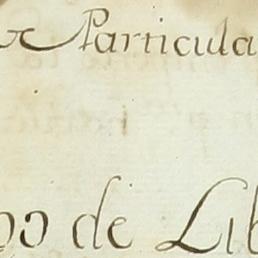 Particula
de Lib